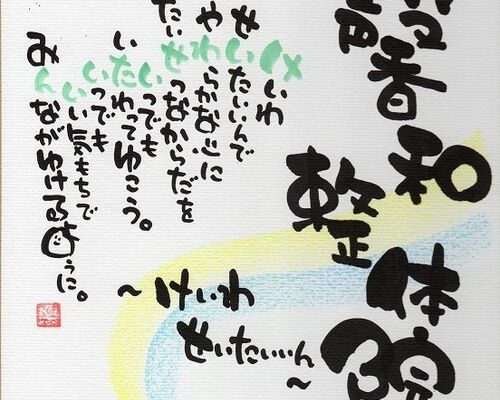 馨和
整体院
～けいわ
せいたいいん～
けいわ
せいたいいんで
やわらかな心に
たいせつなからだを
いつでも
いたわってゆこう。
いつでも
いい気もちで
みんながゆけるように。